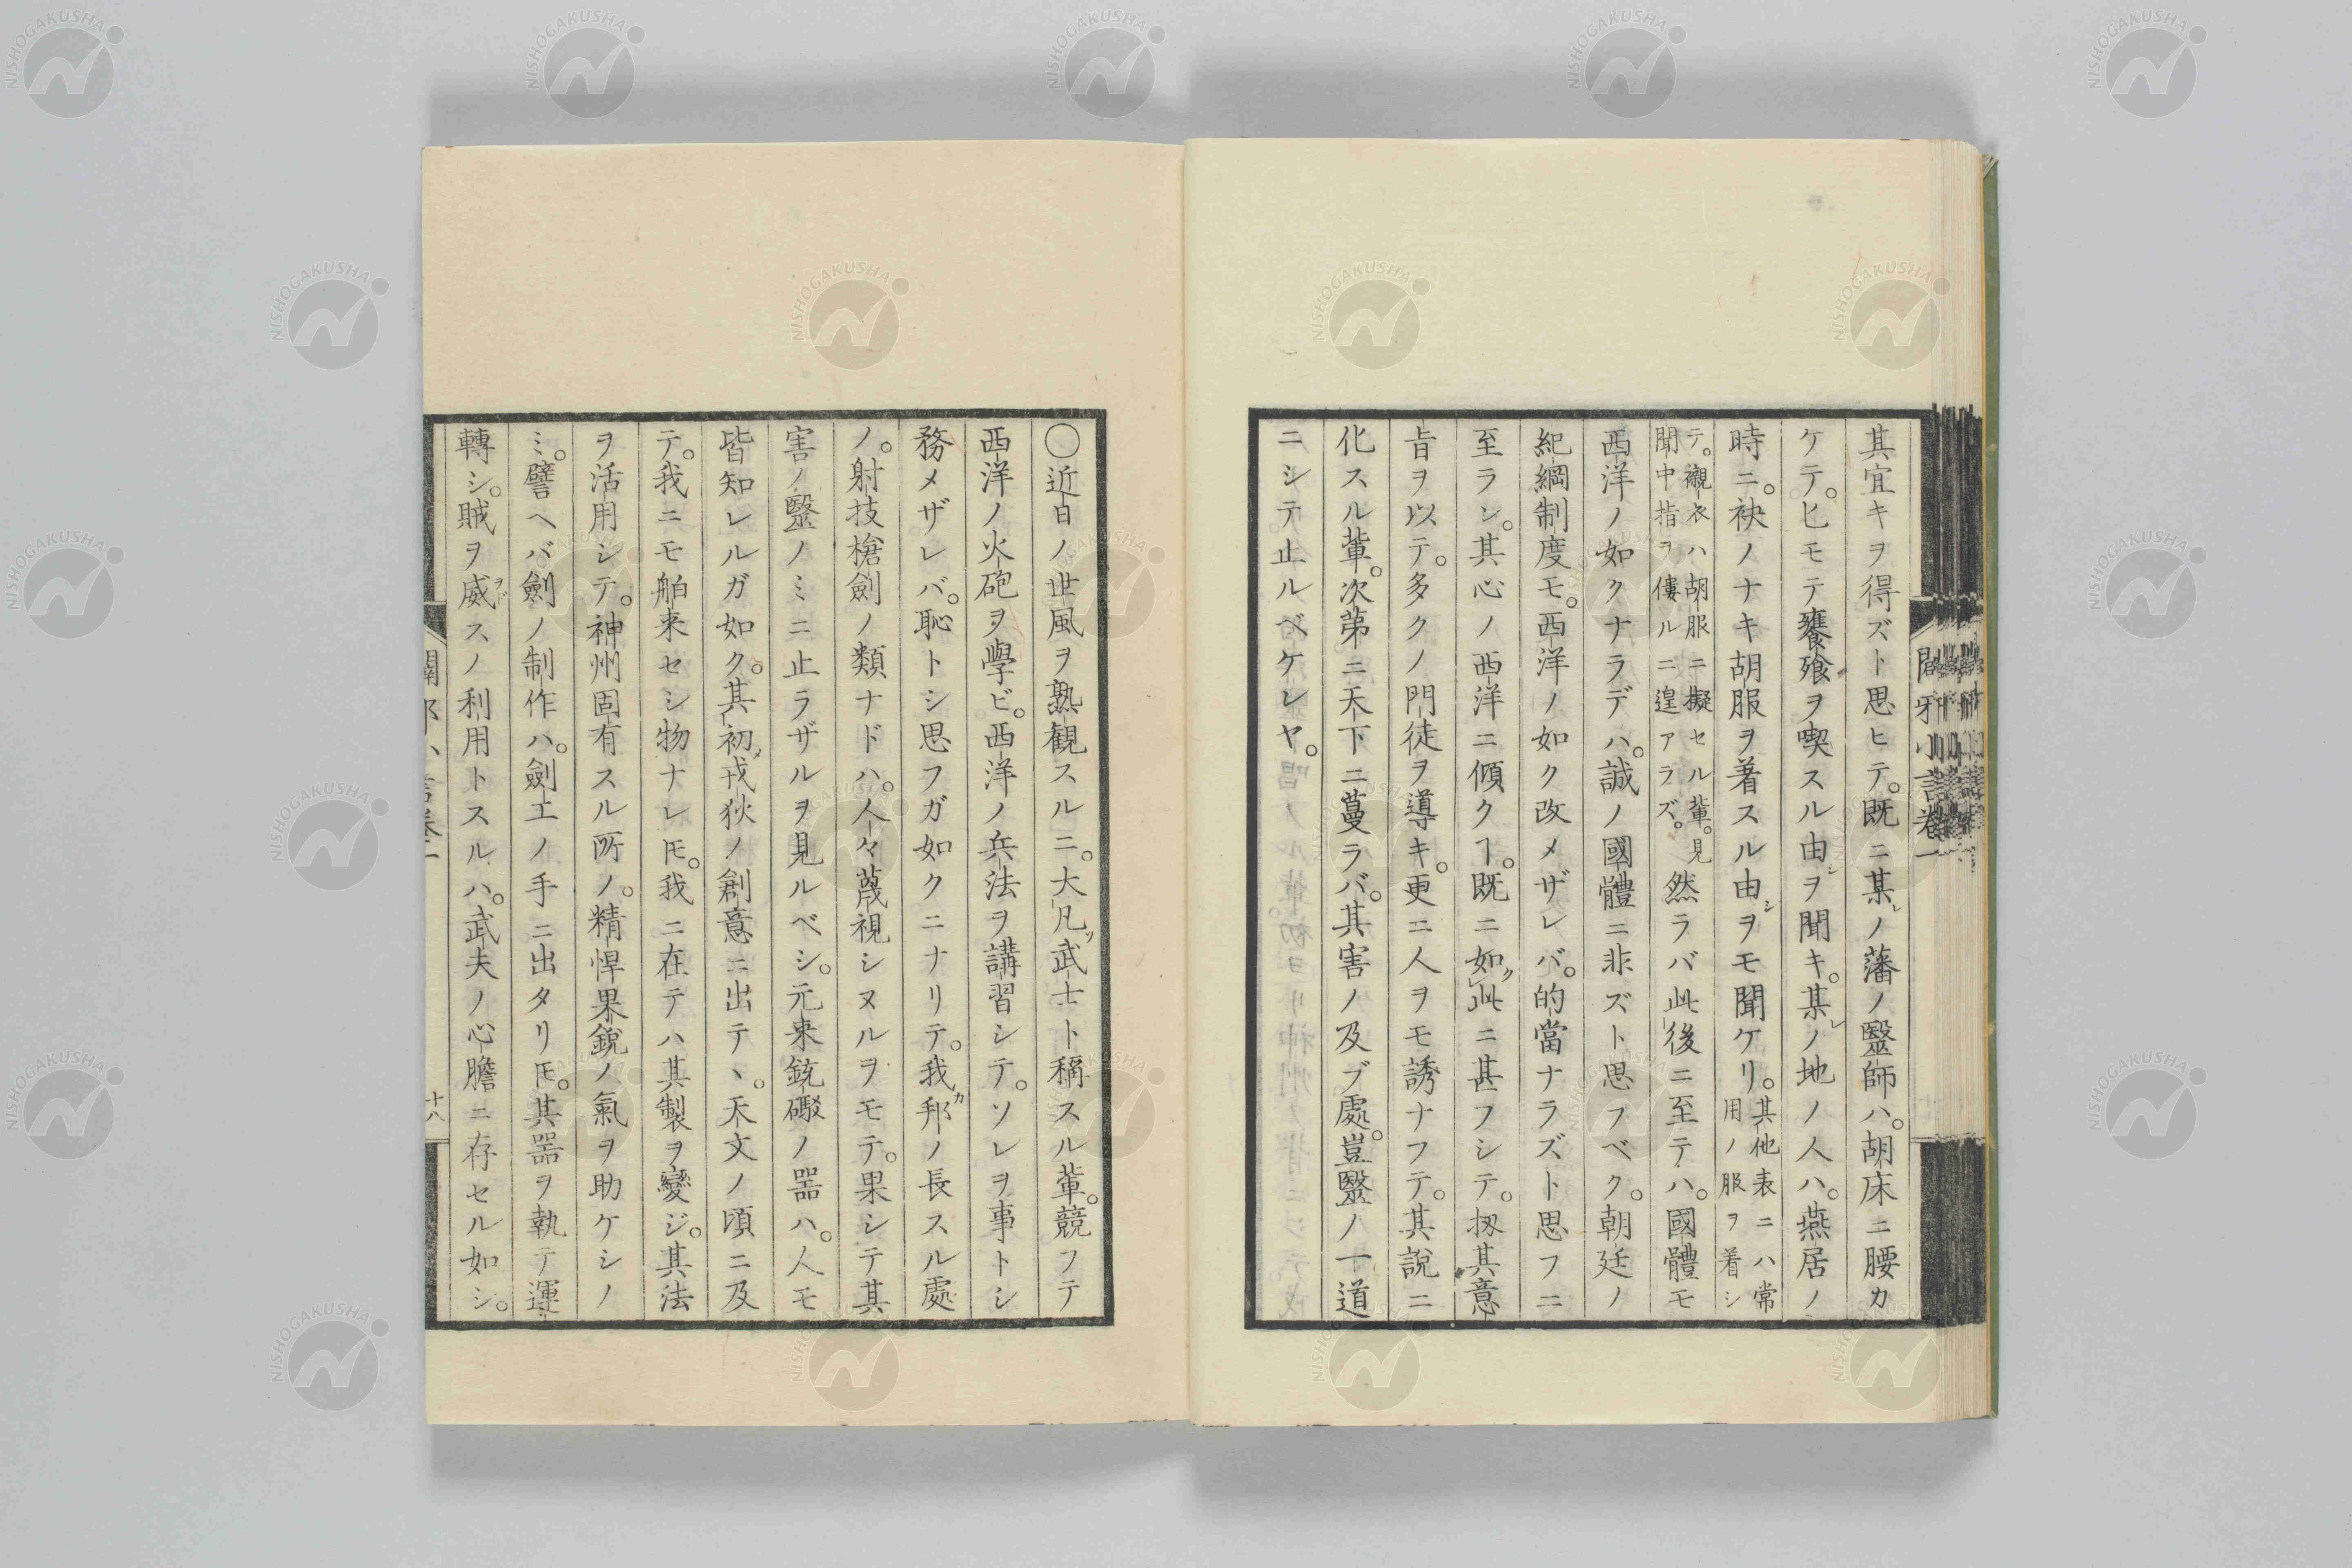 其宜キヲ得ズト思ヒテ。既ニ某ノ藩ノ醫師ハ。胡床ニ腰カ
ケテ。匕モテ饔飧ヲ喫スル由ヲ聞キ。某ノ地ノ人ハ。燕居ノ
時ニ。袂ノナキ胡服ヲ着スル由ヲモ聞ケリ。其他表ニハ常用ノ服ヲ着シ
テ。襯衣ハ胡服ニ擬セル輩。見聞中指ヲ僂ルニ遑アラズ。然ラバ此後ニ至テハ。國體モ
西洋ノ如クナラデハ。誠ノ國體ニ非ズト思フベク。朝廷ノ
紀綱制度モ。西洋ノ如ク改メザレバ。的當ナラズト思フニ
至ラン。其心ノ西洋ニ傾クヿ。既ニ如此ニ甚フシテ。扨其意
旨ヲ以テ。多クノ門徒ヲ導キ。更ニ人ヲモ誘ナフテ。其說ニ
化スル輩。次第ニ天下ニ蔓ラバ。其害ノ及ブ處。豈醫ノ一道
ニシテ止ルベケレヤ。
闢邪小言卷一
〇近日ノ世風ヲ熟觀スルニ。大凡武士ト稱スル輩。競フテ
西洋ノ火砲ヲ學ビ。西洋ノ兵法ヲ講習シテ。ソレヲ事トシ
務メザレバ。恥トシ思フガ如クニナリテ。我邦ノ長スル處
ノ。射技槍劍ノ類ナドハ。人々蔑視シヌルヲモテ。果シテ其
害ノ醫ノミニ止ラザルヲ見ルベシ。元來銃礮ノ器ハ。人モ
皆知レルガ如ク。其初戎狄ノ創意ニ出テヽ。天文ノ頃ニ及
テ。我ニモ舶来セシ物ナレ𪜈。我ニ在テハ其製ヲ變ジ。其法
ヲ活用シテ。神州固有スル所ノ。精悍果銳ノ氣ヲ助ケシノ
ミ。譬ヘバ劍ノ制作ハ。劍工ノ手ニ出タリ𪜈。其器ヲ執テ運
轉シ。賊ヲ威スノ利用トスルハ。武夫ノ心膽ニ存セル如シ。
十八
NISHOGAKUSHA